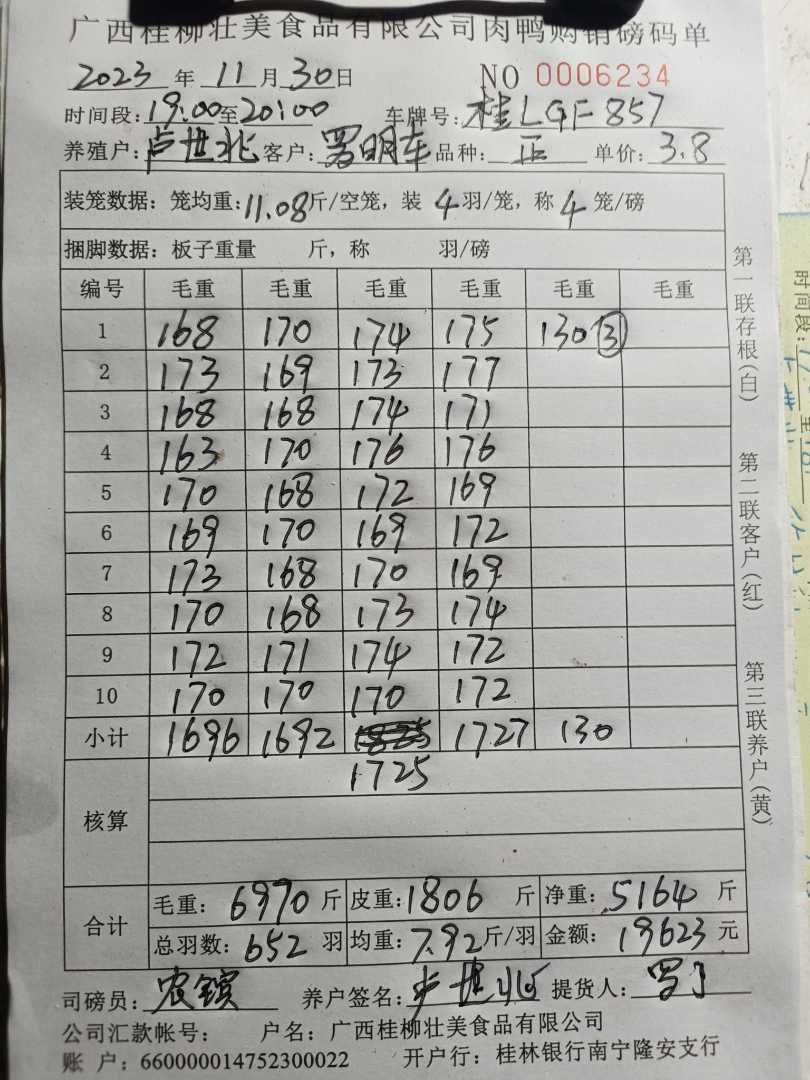 广西桂柳壮美食品有限公司肉鸭购销磅码单
2023 年 11 月 30 日 NO 0006234
时间段: 19:00 至 20:00 车牌号: 桂LGF857
养殖户: 卢世北 客户: 罗明车 品种: 正 单价: 3.8
装笼数据: 笼均重: 11.08 斤/空笼, 装 4 羽/笼, 称 4 笼/磅
捆脚数据: 板子重量 斤, 称 羽/磅
编号 毛重 毛重 毛重 毛重 毛重 毛重
1 168 170 174 175 130 ③
2 173 169 173 177
3 168 168 174 171
4 163 170 176 176
5 170 168 172 169
6 169 170 169 172
7 173 168 170 169
8 170 168 173 174
9 172 171 174 172
10 170 170 170 172
小计 1696 1692 1727 130
1725
核算
合计 毛重: 6970 斤 皮重: 1806 斤 净重: 5164 斤
总羽数: 652 羽 均重: 7.92 斤/羽 金额: 19623 元
司磅员: 农镔 养户签名: 卢世北 提货人: 罗
公司汇款帐号: 户名: 广西桂柳壮美食品有限公司
账 户: 660000014752300022 开户行: 桂林银行南宁隆安支行
第一联存根(白) 第二联客户(红) 第三联养户(黄)
时间段: